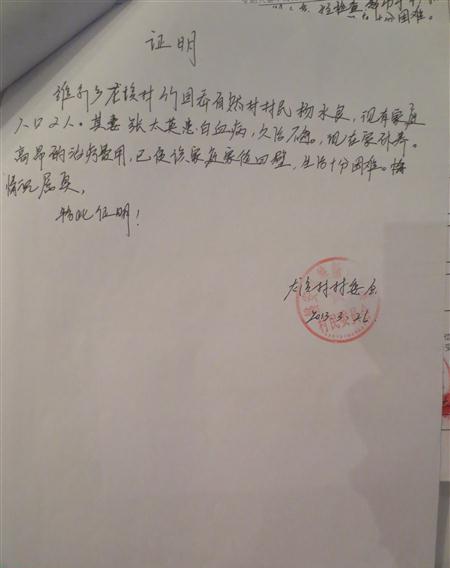 十分困难。
证明
维新乡龙埃村竹园 有自然村村民杨永良,现有家庭
人口2人。其妻张大英患白血病,久治不愈,现在家休养。
高昂的治疗费用,已使该家庭家徒四壁,生活十分困难。
情况属实,
特此证明!
村村委会
2013.3.26.
村民委员会